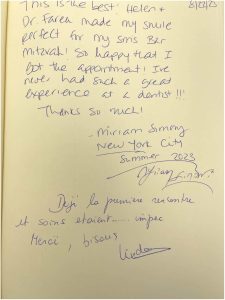 This is the best! Helen &
Dr Faren made my smile
perfect for my sons Bar
Mitzvah! So happy that I
got the appointment! I've
never had such a great
experience at a dentist!!!
Thanks so much!
- Miriam Simony
New York City
Summer 2023
Déjà la première rencontre
et soins étaient..... impec
Merci, bisous
Linda